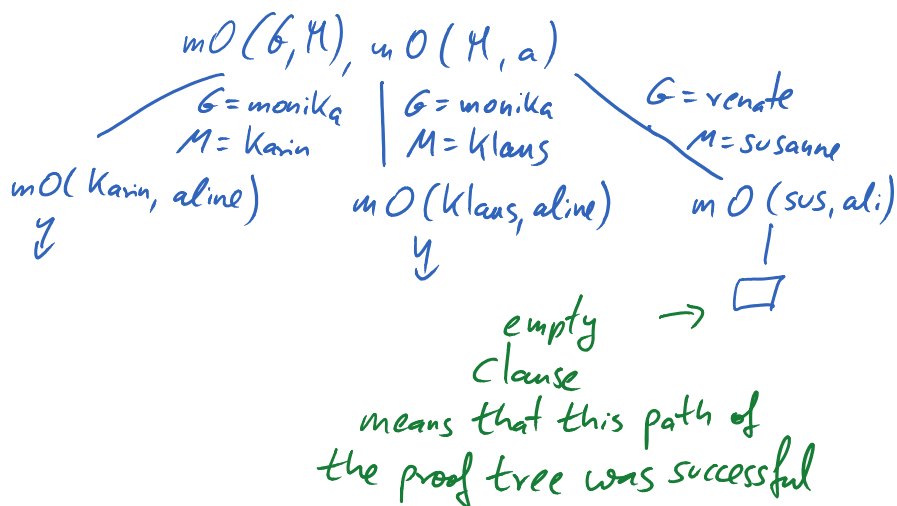 mO(G,M), mO(M,a)
G=monika
M=Karin
G=monika
M=Klaus
G=renate
M=susanne
mO(Karin, aline)
mO(Klaus, aline)
mO(sus, ali)
empty
Clause
means that this path of
the proof tree was successful